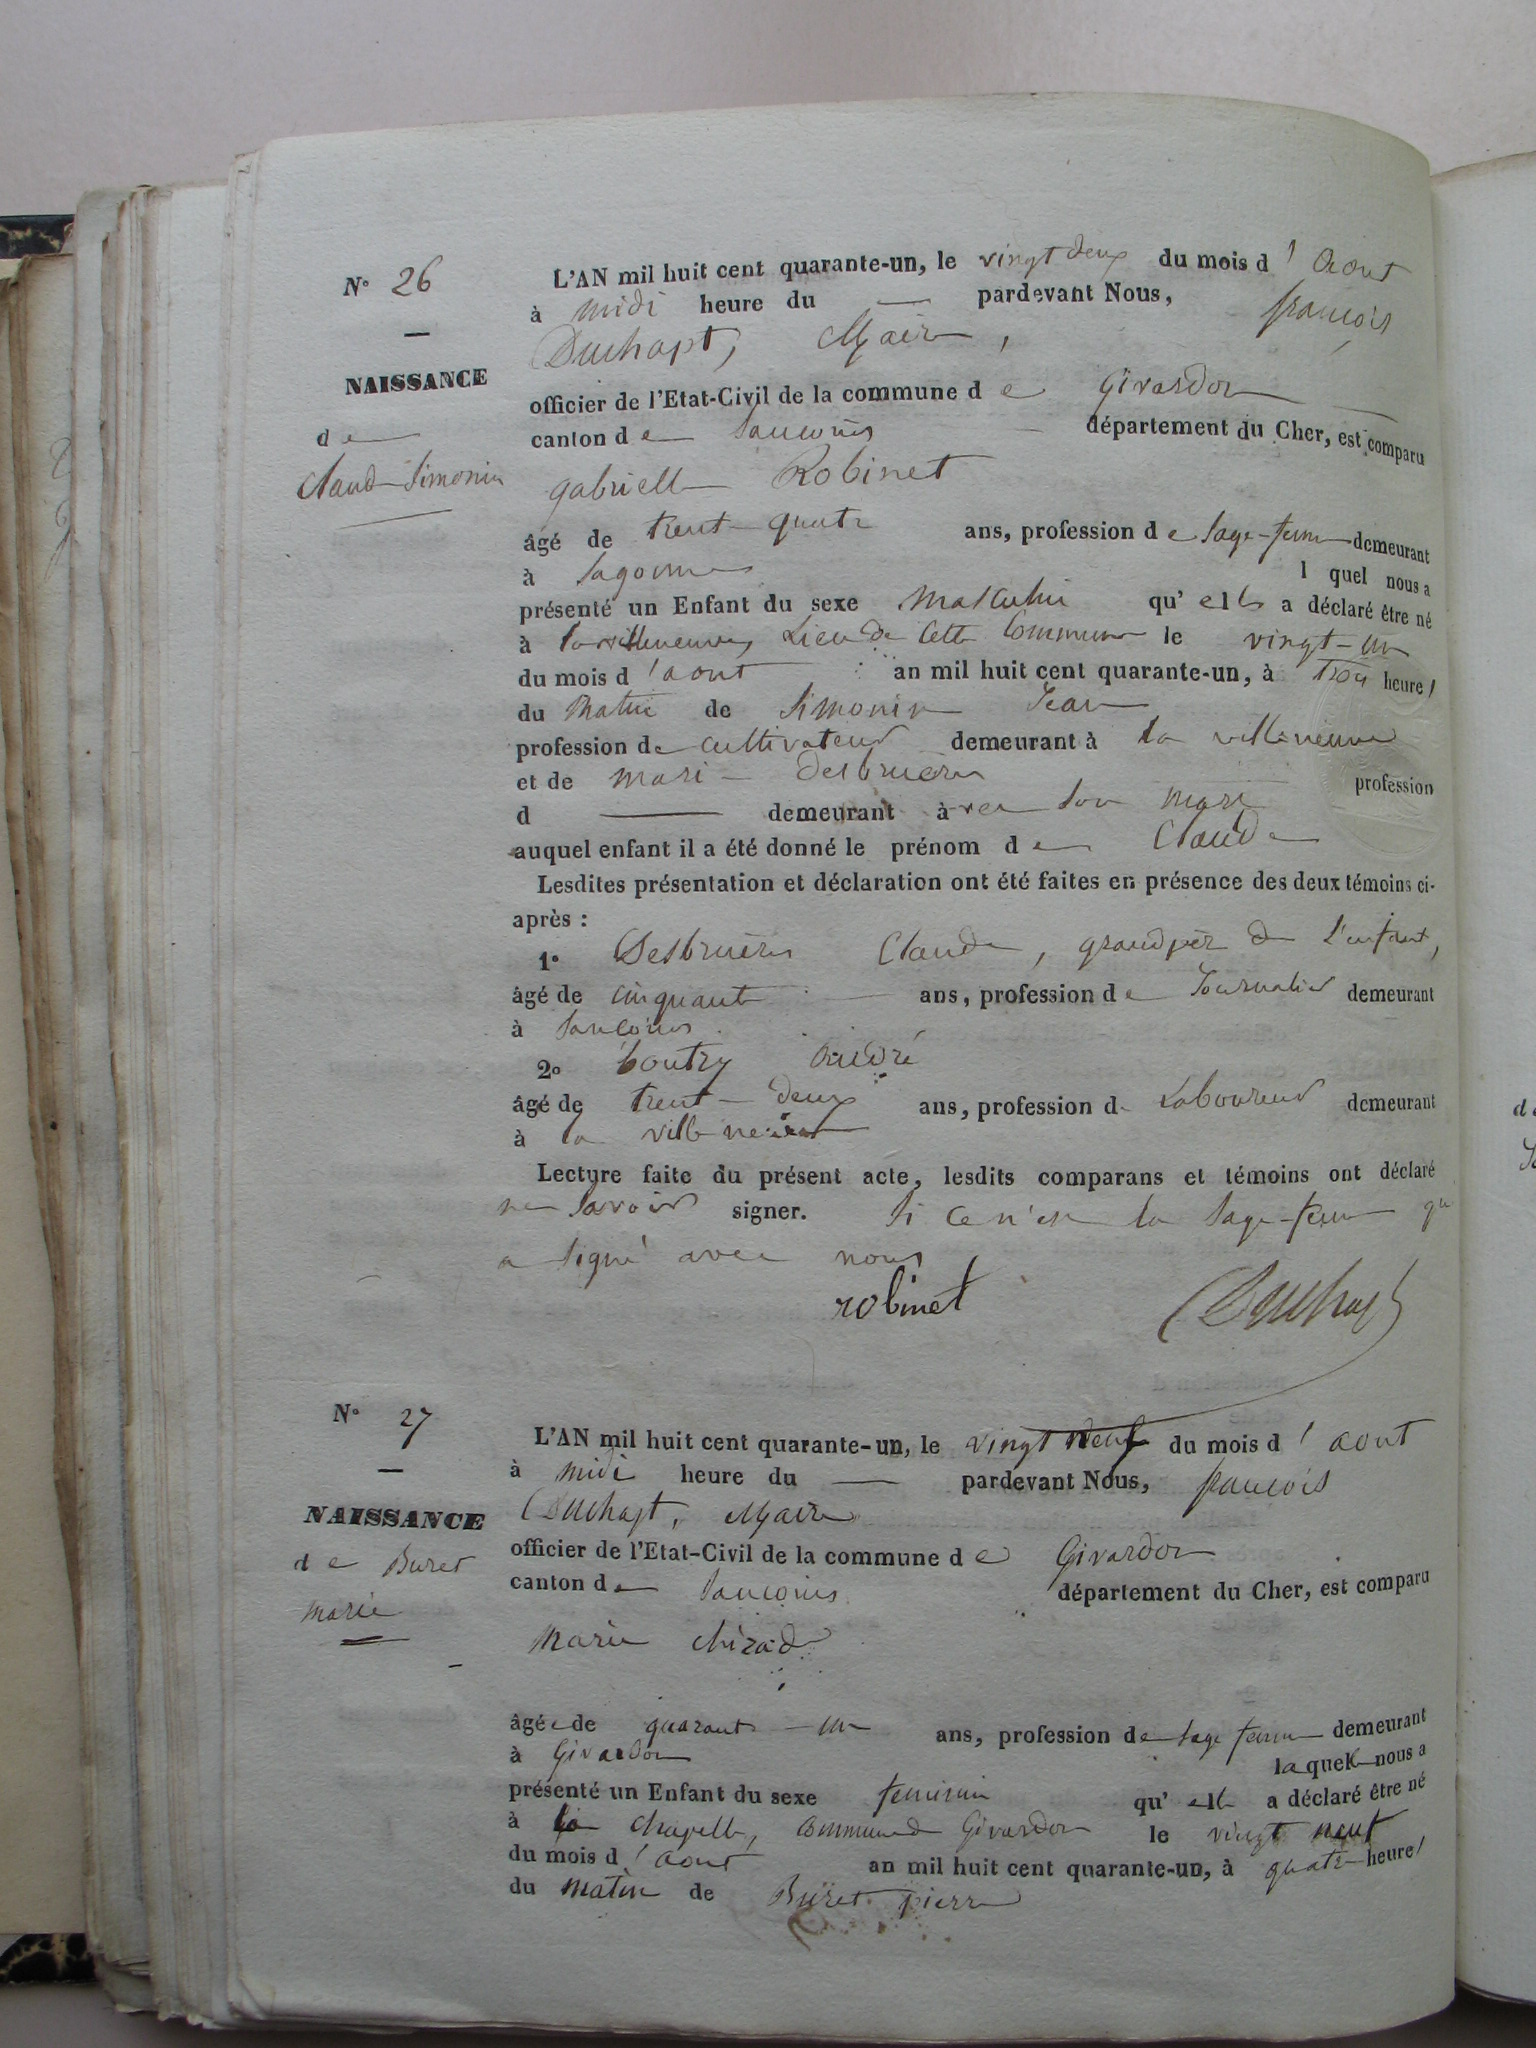 N° 26
NAISSANCE
de
Claude Simonin
L'AN mil huit cent quarante-un, le vingt deux du mois d'Aout
à midi heure du — pardevant Nous, françois
Duchapt, Maire,
officier de l'Etat-Civil de la commune de Givardon
canton de Sancoins département du Cher, est comparu
gabrielle Robinet
âgé de trente-quatre ans, profession de Sage-femme demeurant
à Sagonne lquel nous a
présenté un Enfant du sexe Masculin qu'elle a déclaré être né
à la villeneuve, Lieu de Cette Commune le vingt-un
du mois d'aout an mil huit cent quarante-un, à trois heure/
du Matin de Simonin Jean
profession de cultivateur demeurant à la villeneuve
et de marie desbruères profession
d — demeurant àvec son mari
auquel enfant il a été donné le prénom de Claude
Lesdites présentation et déclaration ont été faites en présence des deux témoins ci-
après :
1° Desbruères Claude, grandpère de L'enfant,
âgé de cinquante ans, profession de Journalier demeurant
à Sancoins
2° boutry André
âgé de trente-deux ans, profession d. Laboureur demeurant
à la villeneuve
Lecture faite du présent acte, lesdits comparans et témoins ont déclaré
ne Savoir signer. Si Ce n'est la Sage-femme qui
a signé avec nous
robinet Duchapt
N° 27
NAISSANCE
de Buret
marie
L'AN mil huit cent quarante-un, le vingt neuf du mois d'aout
à midi heure du — pardevant Nous, françois
Duchapt, Maire
officier de l'Etat-Civil de la commune de Givardon
canton de Sancoins département du Cher, est comparu
Marie chirade
âgée de quarante-un ans, profession de Sage femme demeurant
à Givardon laquelle nous a
présenté un Enfant du sexe feminin qu'elle a déclaré être né
à la chapelle, commune de Givardon le vingt neuf
du mois d'aout an mil huit cent quarante-un, à quatre heure/
du Matin de Buret pierre